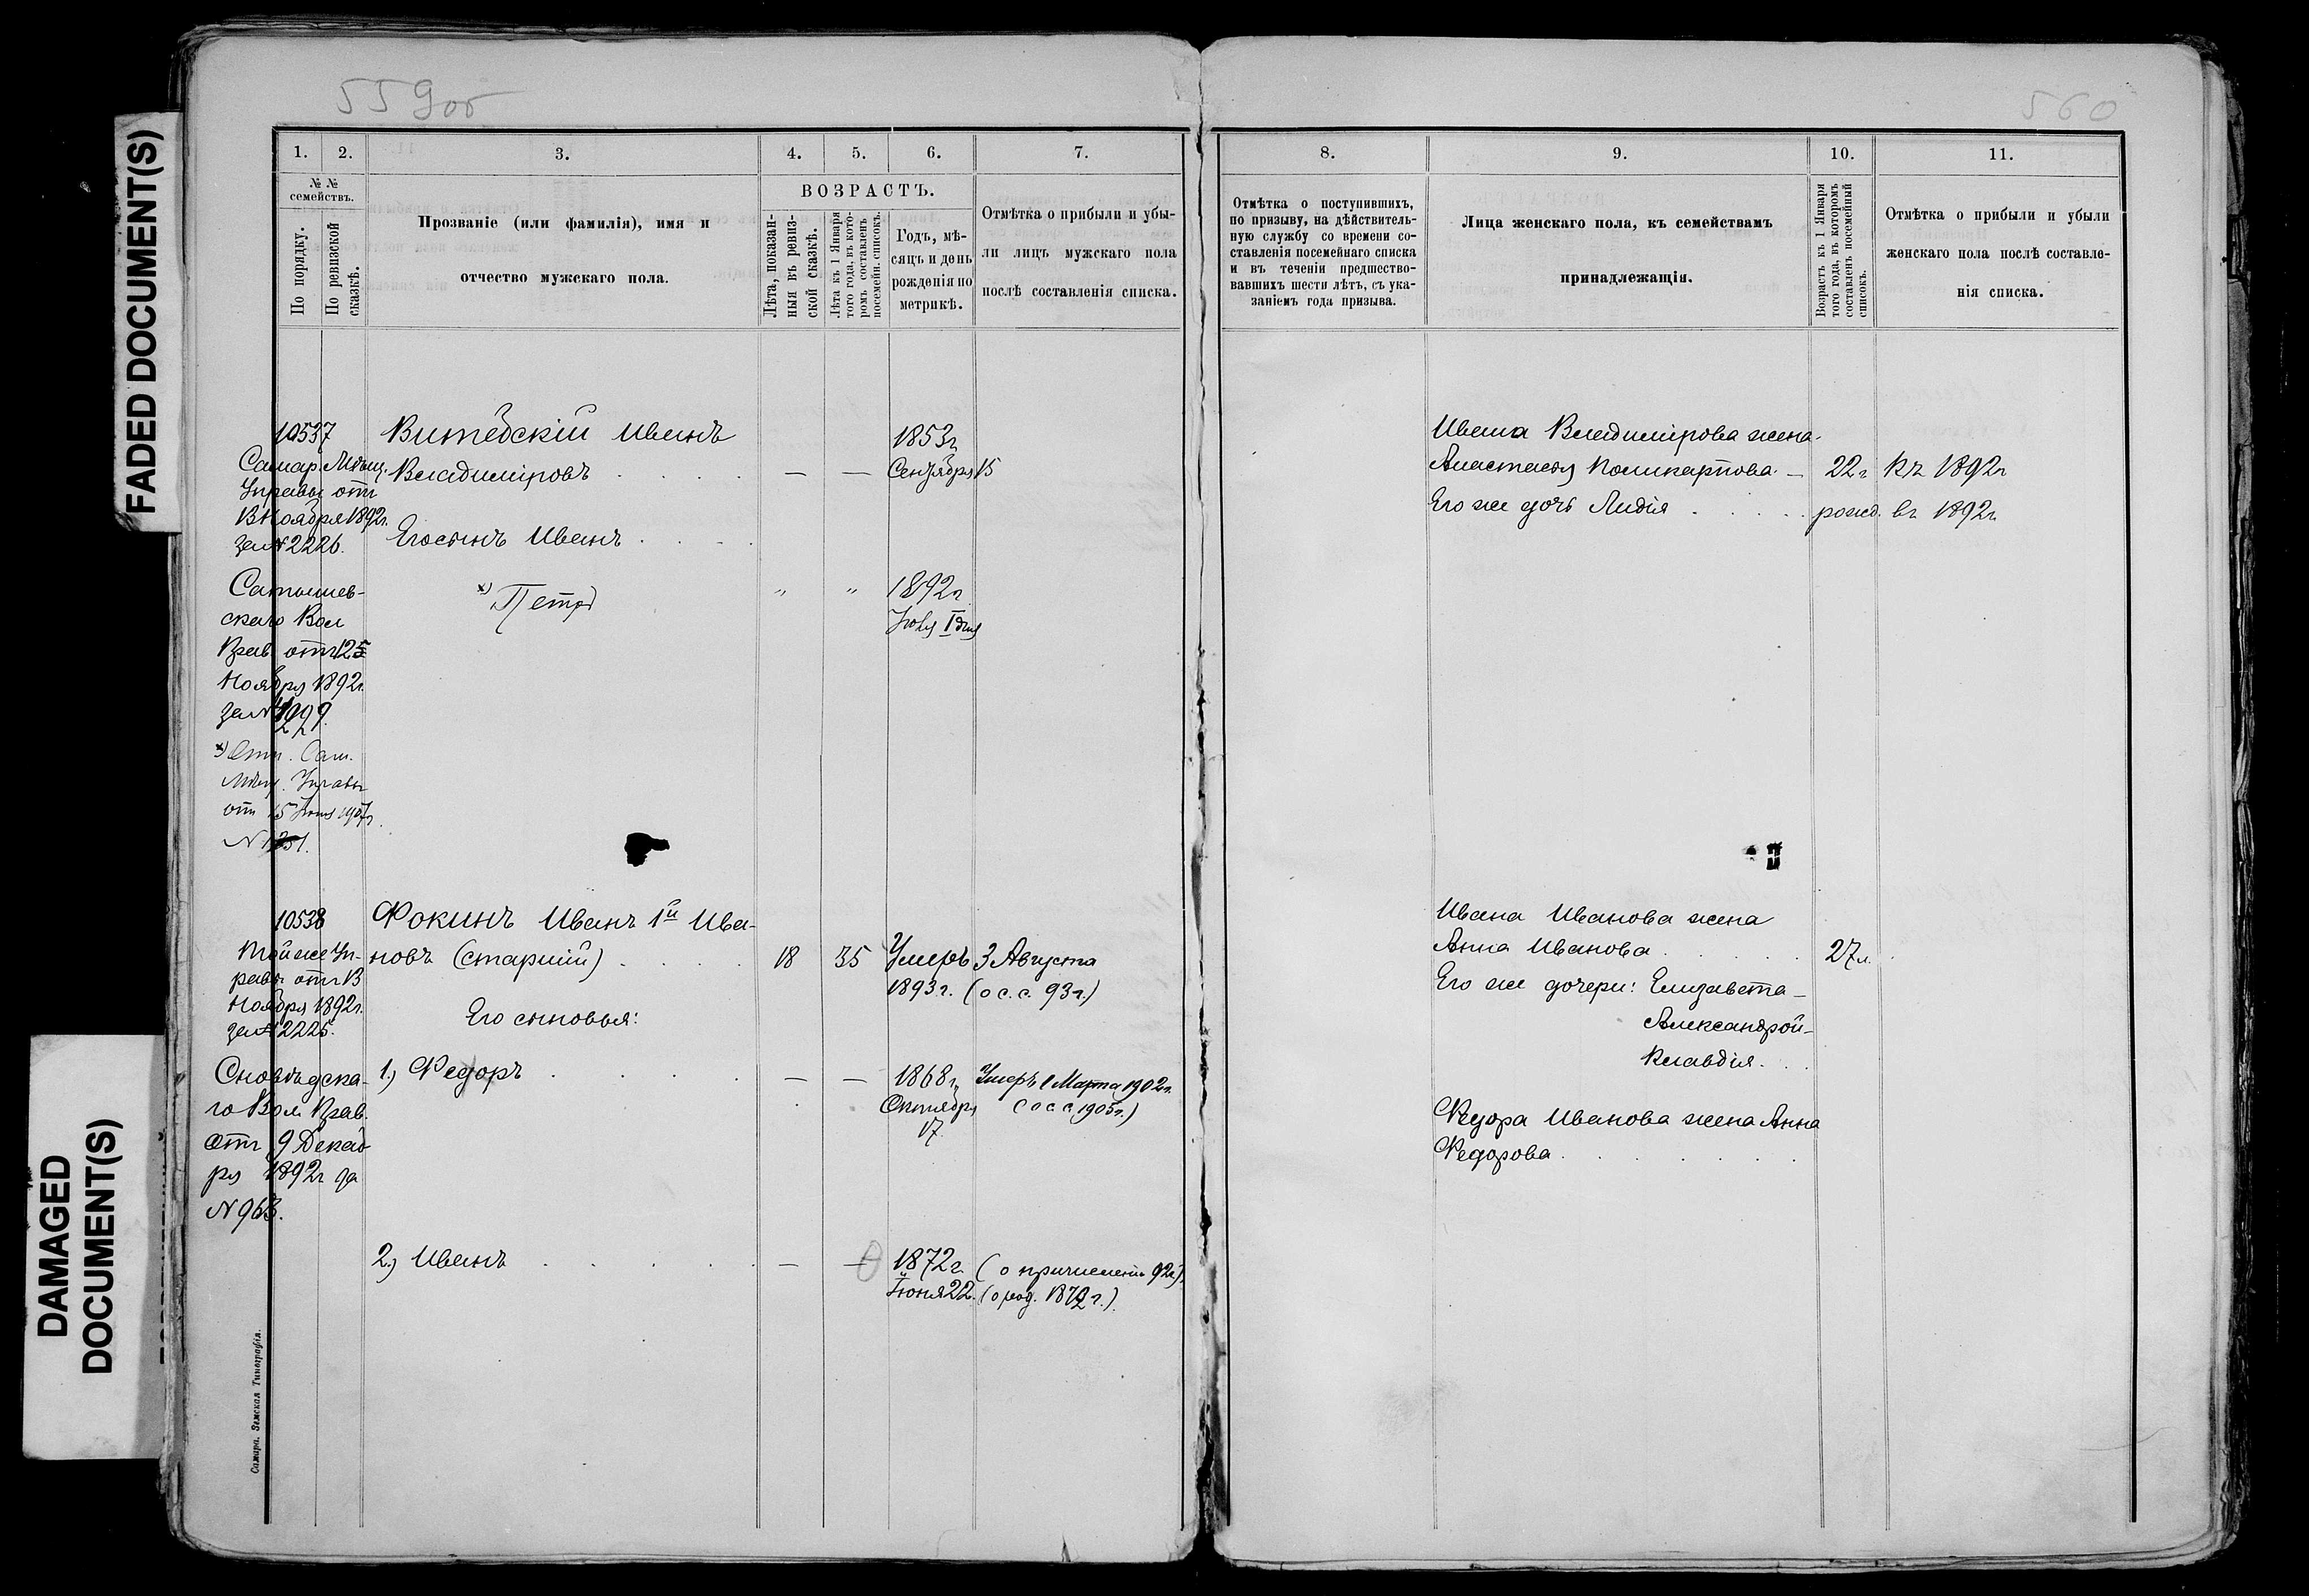 FADED DOCUMENT(S)
DAMAGED
DOCUMENT(S)
559об
1. 2. 3. 4. 5. 6. 7.
№ №
семействъ.
По порядку.
По ревизской
сказкѣ.
Прозваніе (или фамилія), имя и
отчество мужскаго пола.
ВОЗРАСТЪ.
Лѣта, показан-
ныя въ ревиз-
ской сказкѣ.
Лѣта къ 1 Января
того года, въ кото-
ромъ составленъ
посемейн. списокъ.
Годъ, мѣ-
сяцъ и день
рожденія по
метрикѣ.
Отмѣтка о прибыли и убы-
ли лицъ мужскаго пола
послѣ составленія списка.
10537
Самар. Мѣщ.
Управы отъ
Ноября 1892г.
за № 2226.
Вол
Прав отъ 25
Ноября 1892г.
за №
х) Отн. Сам.
Мѣщ. Управы
отъ 15 1907г.
№
Иванъ
Владиміровъ
— — 1853г.
Сентября 15
Его сынъ Иванъ
х) Петръ
" " 1892г.
10538
Той же Уп-
равы отъ
Ноября 1892г.
за № 2225.
го Вол Прав.
отъ 9 Декаб-
ря 1892г за
№ 963.
Фокинъ Иванъ 1й Ива-
новъ (старшій) 18 35 Умеръ 3 Августа
1893г. (о с. с. 93г.)
Его сыновья:
1.) Федоръ — — 1868г. Умеръ 1 Марта 1902г.
Октября (о с с 1905г.)
17
2.) Иванъ — — 1872г. (о причислен 92г)
Іюня 22. (о род. 1872г.)
Самара. Земская Типографія.
560
8. 9. 10. 11.
Отмѣтка о поступившихъ,
по призыву, на дѣйствитель-
ную службу со времени со-
ставленія посемейнаго списка
и въ теченіи предшество-
вавшихъ шести лѣтъ, съ ука-
заніемъ года призыва.
Лица женскаго пола, къ семействамъ
принадлежащія.
Возрастъ къ 1 Января
того года, въ которомъ
составленъ посемейный
списокъ.
Отмѣтка о прибыли и убыли
женскаго пола послѣ составле-
нія списка.
Ивана Владимірова жена
Анастасія Поликарпова — 22г къ 1892г
Его же дочь Лидія рожд. въ 1892г.
Ивана Иванова жена
Анна Иванова 27л.
Его же дочери: Елизавета —
Клавдія.
Федора Иванова жена Анна
Федорова